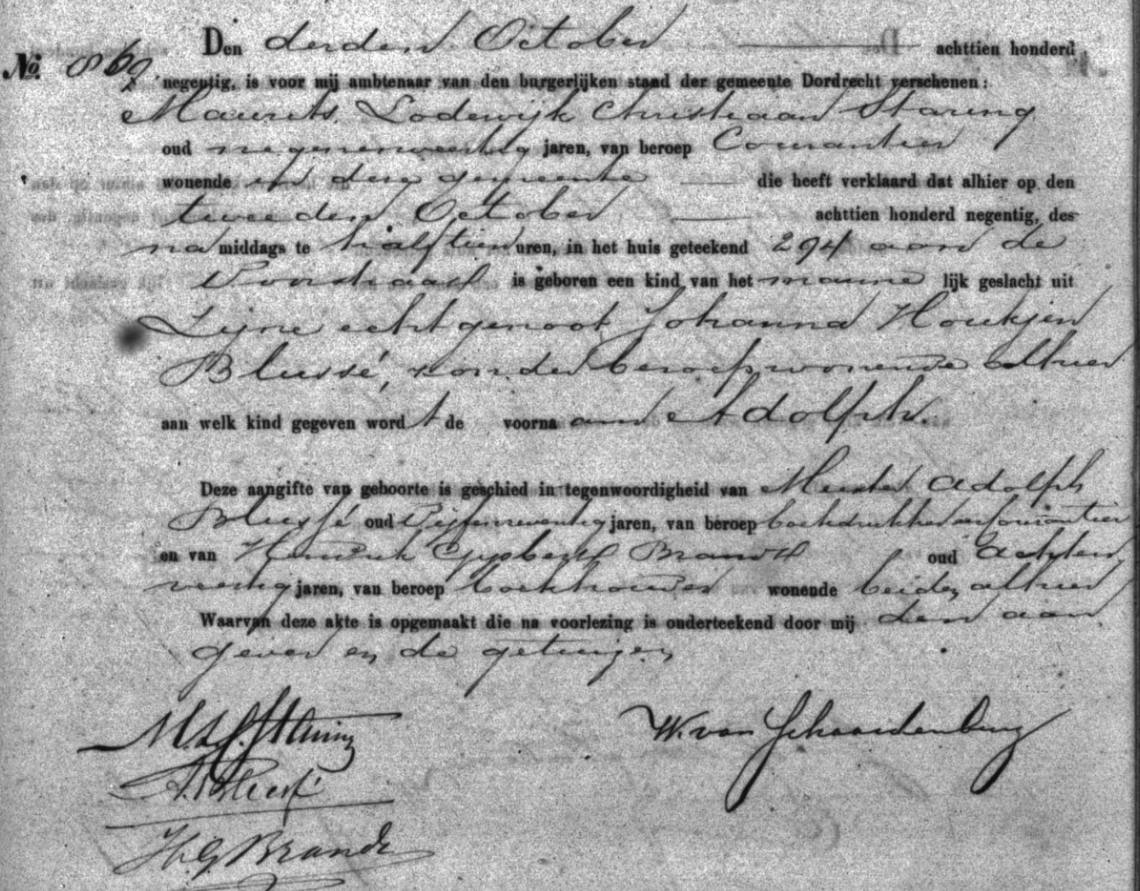 Den derden October achttien honderd
No. 869 negentig, is voor mij ambtenaar van den burgerlijken staad der gemeente Dordrecht verschenen:
Maurits Lodewijk Christiaan Staring
oud negenentwintig jaren, van beroep Courantier
wonende in deze gemeente die heeft verklaard dat alhier op den
tweeden October achttien honderd negentig, des
na middags te half tien uren, in het huis geteekend 294 aan de
Voorstraat is geboren een kind van het manne lijk geslacht uit
Zijne echtgenoot Johanna Houkjen
Blussé, zonder beroep wonende alhier
aan welk kind gegeven word t de voorna am Adolph.
Deze aangifte van geboorte is geschied in tegenwoordigheid van Meester Adolph
Blussé oud jaren, van beroep boekdrukker en Courantier
en van Hendrik Gijsbert Brandt oud achten
veertig jaren, van beroep boekhouder wonende beiden alhier
Waarvan deze akte is opgemaakt die na voorlezing is onderteekend door mij den aan
gever en de getuigen
M.L.C. Staring W. van Schaardenburg
A. Blussé
H.G. Brandt